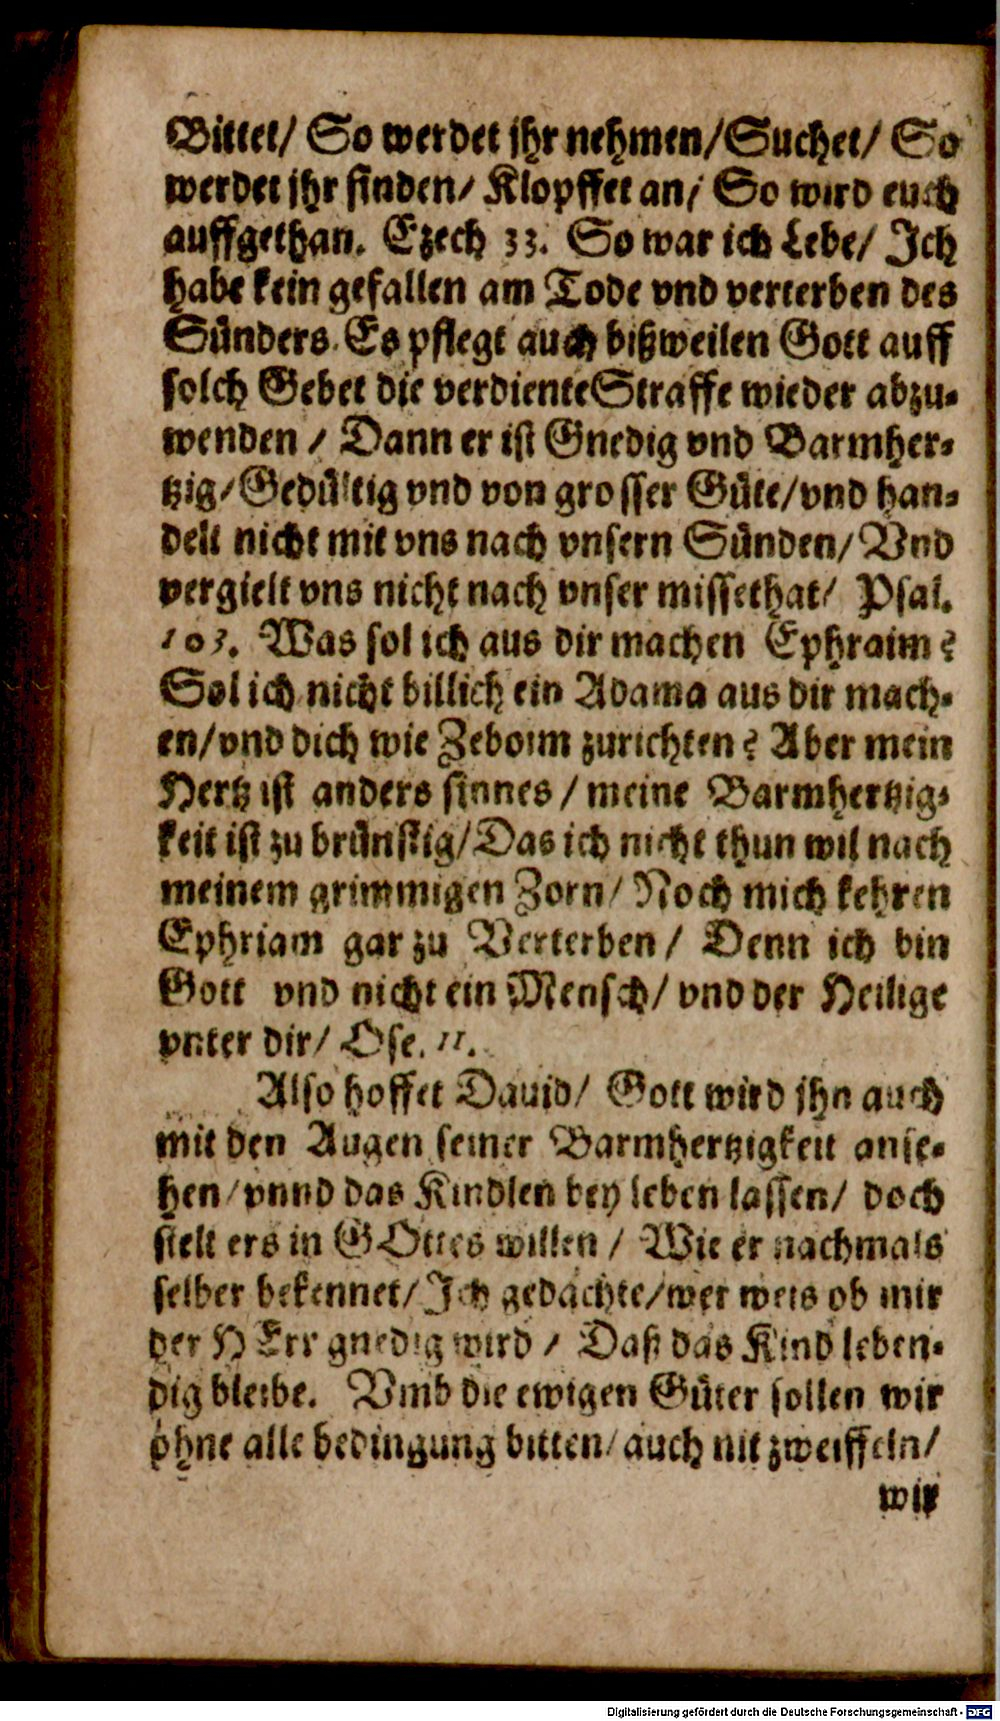 Bittet/ So werdet jhr nehmen/Suchet/ So
werdet jhr finden/ Klopffet an/ So wird euch
auffgethan. Ezech 33. So war ich Lebe/ Jch
habe kein gefallen am Tode vnd verterben des
Sünders. Es pflegt auch bißweilen Gott auff
solch Gebet die verdiente Straffe wieder abzu-
wenden / Dann er ist Gnedig vnd Barmher-
tzig/Gedültig vnd von grosser Güte/vnd han-
delt nicht mit vns nach vnsern Sünden/ Vnd
vergielt vns nicht nach vnser missethat/ Psal.
103. Was sol ich aus dir machen Ephraim?
Sol ich nicht billich ein Adama aus dir mach-
en/vnd dich wie Zeboim zurichten? Aber mein
Hertz ist anders sinnes / meine Barmhertzig-
keit ist zu brünstig/Das ich nicht thun wil nach
meinem grimmigen Zorn/ Noch mich kehren
Ephriam gar zu Verterben/ Denn ich bin
Gott vnd nicht ein Mensch/ vnd der Heilige
vnter dir/ Ose. 11.
Also hoffet Dauid/ Gott wird jhn auch
mit den Augen seiner Barmhertzigkeit anse-
hen/vnnd das Kindlen bey leben lassen/ doch
stelt ers in GOttes willen / Wie er nachmals
selber bekennet/Jch gedachte/wer weis ob mir
der HErr gnedig wird / Daß das Kind leben-
dig bleibe. Vmb die ewigen Güter sollen wir
ohne alle bedingung bitten/auch nit zweiffeln/
wir
Digitalisierung gefördert durch die Deutsche Forschungsgemeinschaft - DFG